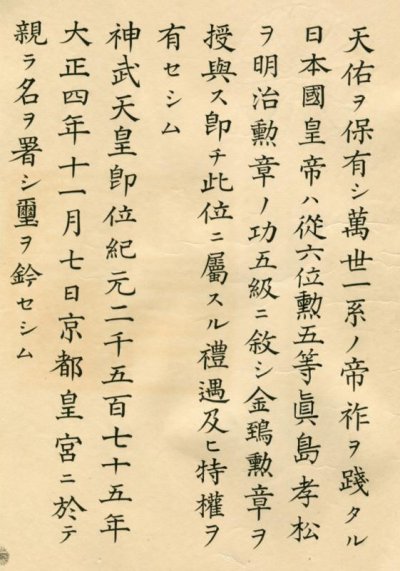 天佑ヲ保有シ萬世一系ノ帝祚ヲ踐タル
日本國皇帝ハ從六位勲五等眞島孝松
ヲ明治勲章ノ功五級ニ敘シ金鵄勲章ヲ
授與ス卽チ此位ニ屬スル禮遇及ヒ特權ヲ
有セシム
神武天皇卽位紀元二千五百七十五年
大正四年十一月七日京都皇宮ニ於テ
親ラ名ヲ署シ璽ヲ鈐セシム